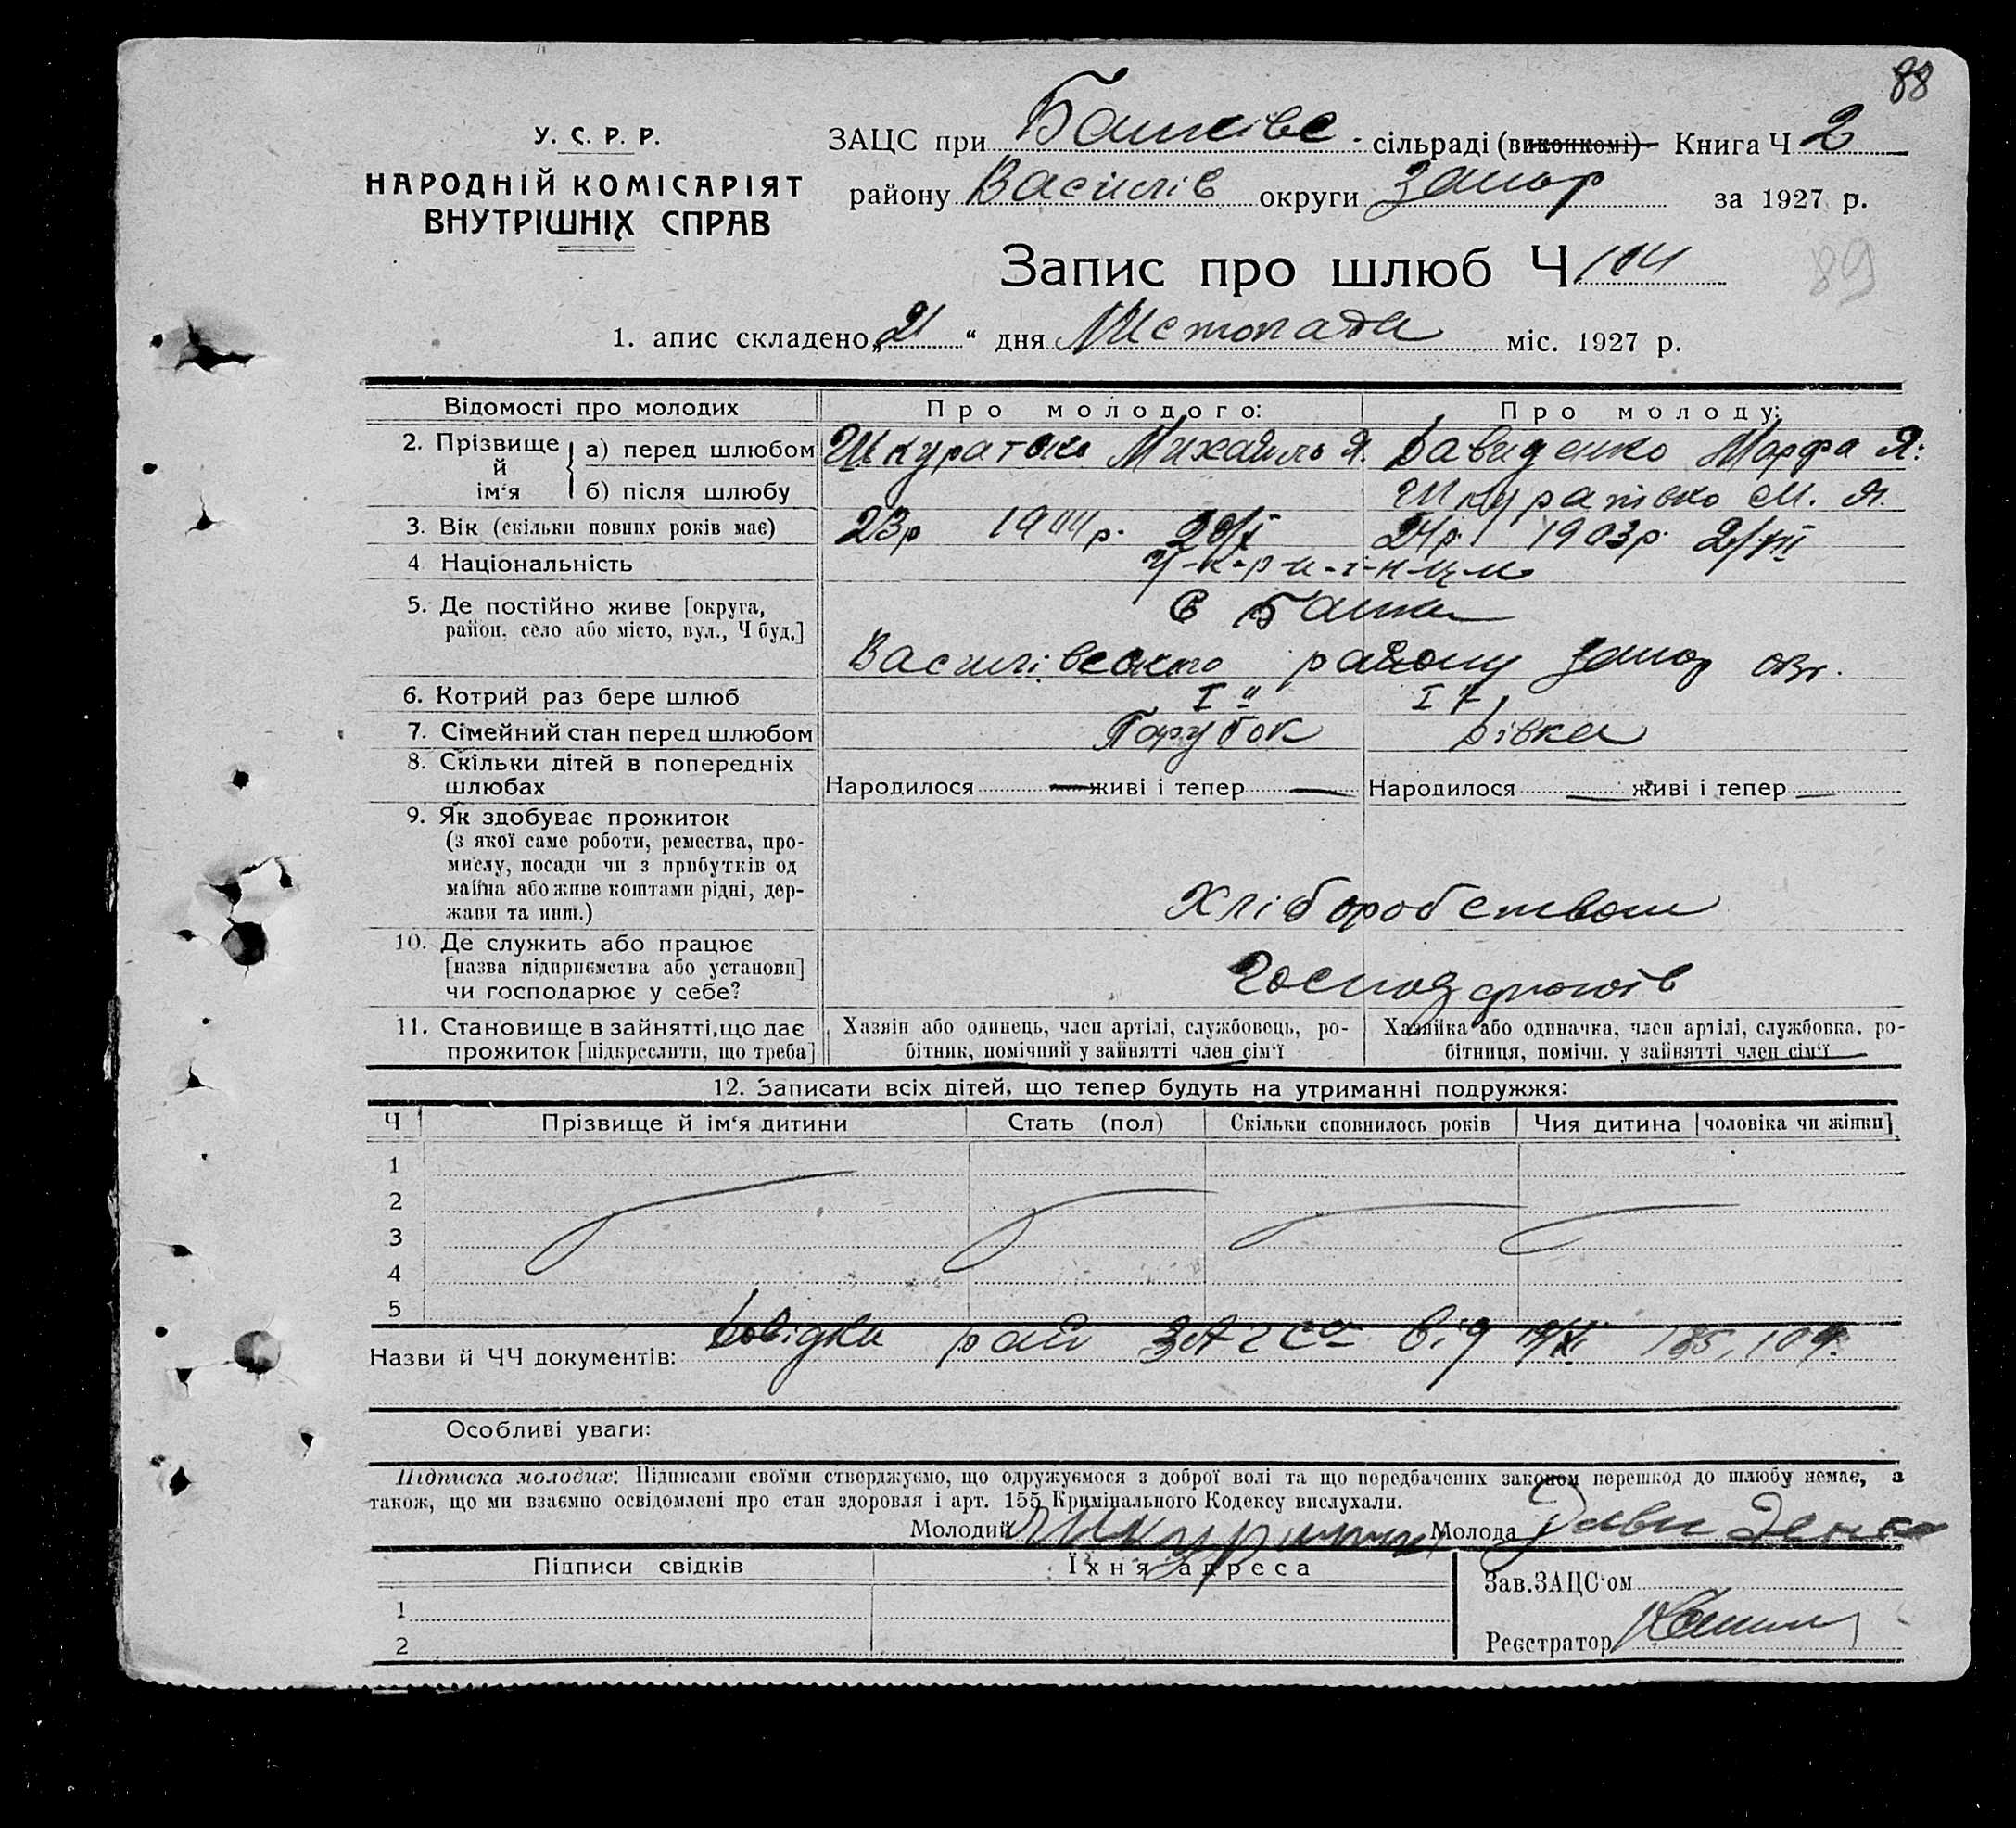 88
У. С. Р. Р.
НАРОДНІЙ КОМІСАРІЯТ
ВНУТРІШНІХ СПРАВ
ЗАЦС при сільраді (виконкомі) Книга Ч 2
району Василів округи Запор за 1927 р.
Запис про шлюб Ч
89
1. апис складено „21“ дня Листопада міс. 1927 р.
Відомості про молодих Про молодого: Про молоду:
2. Прізвище й ім‘я а) перед шлюбом Михайло Я. Давиденко Марфа Я.
б) після шлюбу М. Я.
3. Вік (скільки повних років має) 23р 24р. 1903р.
4 Національність У-к-р-и-ї-н-ц-и
5. Де постійно живе [округа,
район, село або місто, вул., Ч буд.]
Василівського району Запор окр.
6. Котрий раз бере шлюб І й І а
7. Сімейний стан перед шлюбом Парубок Дівка
8. Скільки дітей в попередніх
шлюбах Народилося — живі і тепер — Народилося — живі і тепер —
9. Як здобуває прожиток
(з якої саме роботи, ремества, про-
мислу, посади чи з прибутків од
майна або живе коштами рідні, дер-
жави та инш.) Хліборобством
10. Де служить або працює
[назва підприємства або установи]
чи господарює у себе?
11. Становище в зайнятті, що дає Хазяїн або одинець, член артілі, службовець, ро- Хазяйка або одиначка, член артілі, службовка, ро-
прожиток [підкреслити, що треба] бітник, помічний у зайнятті член сім‘ї бітниця, помічн. у зайнятті член сім‘ї
12. Записати всіх дітей, що тепер будуть на утриманні подружжя:
Ч Прізвище й ім‘я дитини Стать (пол) Скільки сповнилось років Чия дитина [чоловіка чи жінки]
1
2
3
4
5
Назви й ЧЧ документів: Довідка рай від
Особливі уваги:
Підписка молодих: Підписами своїми стверджуємо, що одружуємося з доброї волі та що передбачених законом перешкод до шлюбу немає, а
також, що ми взаємно освідомлені про стан здоровля і арт. 155 Кримінального Кодексу вислухали.
Молодий Молода Давиденко
Підписи свідків Їхня адреса Зав.ЗАЦС‘ом
1
2 Реєстратор